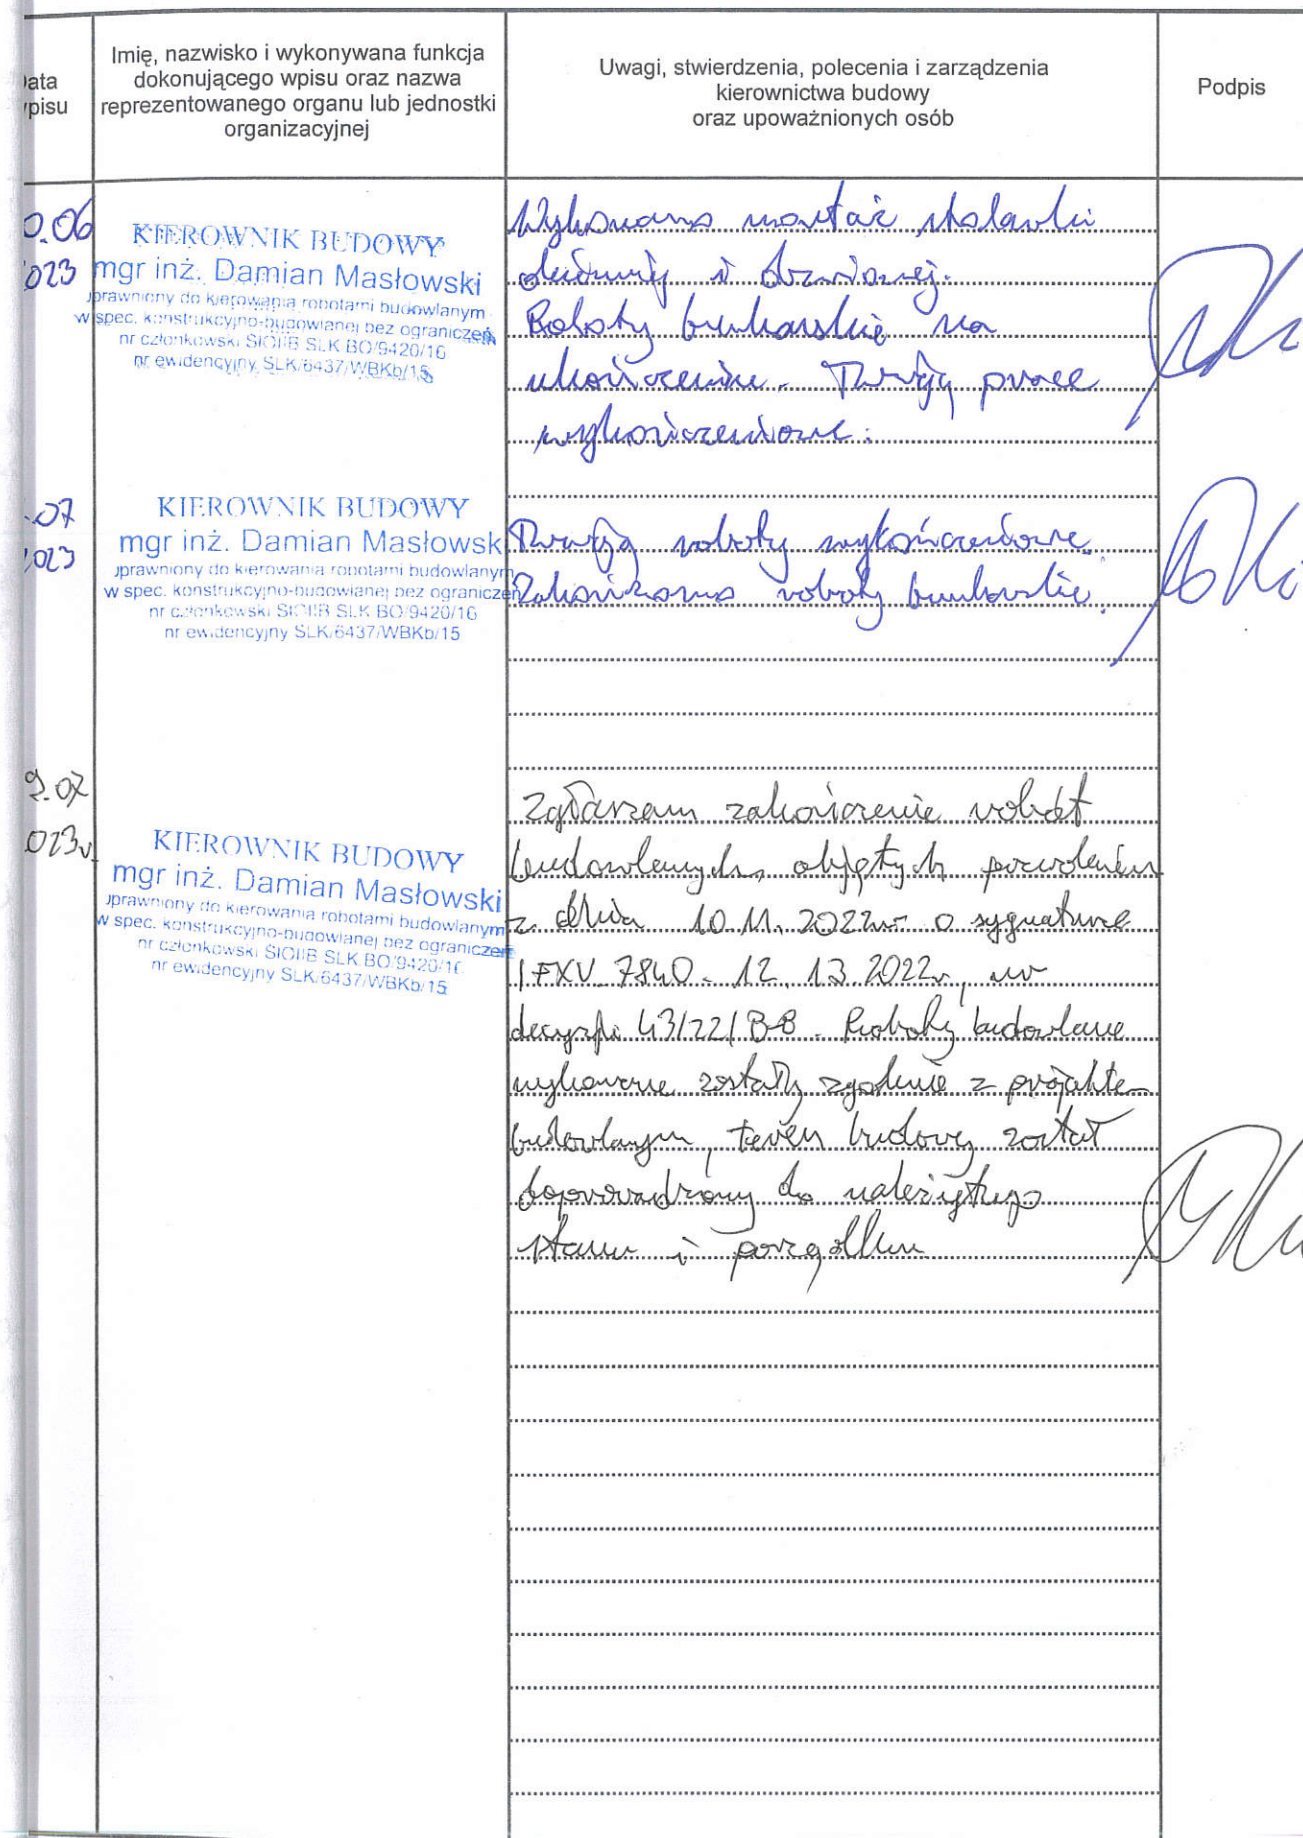 Data
wpisu
Imię, nazwisko i wykonywana funkcja
dokonującego wpisu oraz nazwa
reprezentowanego organu lub jednostki
organizacyjnej
Uwagi, stwierdzenia, polecenia i zarządzenia
kierownictwa budowy
oraz upoważnionych osób
Podpis
0.06
023
KIEROWNIK BUDOWY
mgr inż. Damian Masłowski
uprawniony do kierowania robotami budowlanym
w spec. konstrukcyjno-budowlanej bez ograniczeń
nr członkowski SIOIIB SLK BO/9420/16
nr ewidencyjny SLK/6437/WBKb/15
Wykonano montaż stolarki
okiennej i drzwiowej.
Roboty brukarskie na
ukończeniu. Trwają prace
wykończeniowe.
.07
023
KIEROWNIK BUDOWY
mgr inż. Damian Masłowsk
uprawniony do kierowania robotami budowlanym
w spec. konstrukcyjno-budowlanej bez ograniczeń
nr członkowski SIOIIB SLK BO/9420/16
nr ewidencyjny SLK/6437/WBKb/15
Trwają roboty wykończeniowe.
Zakończono roboty brukarskie.
9.07
023r.
KIEROWNIK BUDOWY
mgr inż. Damian Masłowski
uprawniony do kierowania robotami budowlanym
w spec. konstrukcyjno-budowlanej bez ograniczeń
nr członkowski SIOIIB SLK BO/9420/16
nr ewidencyjny SLK/6437/WBKb/15
Zgłaszam zakończenie robót
budowlanych, objętych pozwoleniem
z dnia 10.11.2022r o sygnaturze
IFXV.7840.12.13.2022r, nr
decyzji 43/22/B-B. Roboty budowlane
wykonane zostały zgodnie z projektem
budowlanym, teren budowy został
doprowadzony do należytego
stanu i porządku